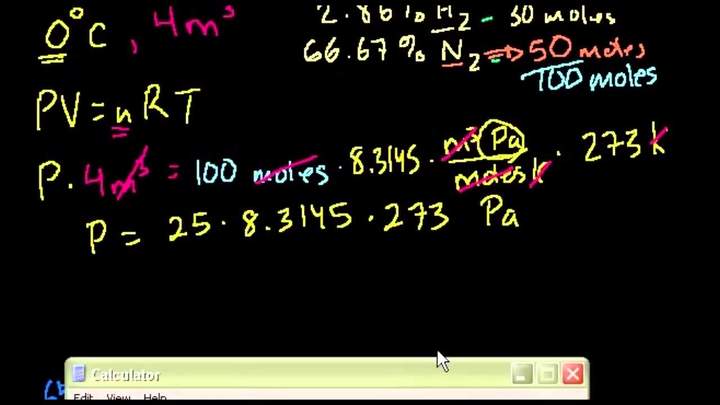 0°C, 4m³
2.86% H₂ - 30 moles
66.67% N₂ ⇒ 50 moles
100 moles
PV = nRT
P · 4m³ = 100 moles · 8.3145 · m³ Pa / moles K · 273 K
P = 25 · 8.3145 · 273 Pa
Calculator
Edit View Help